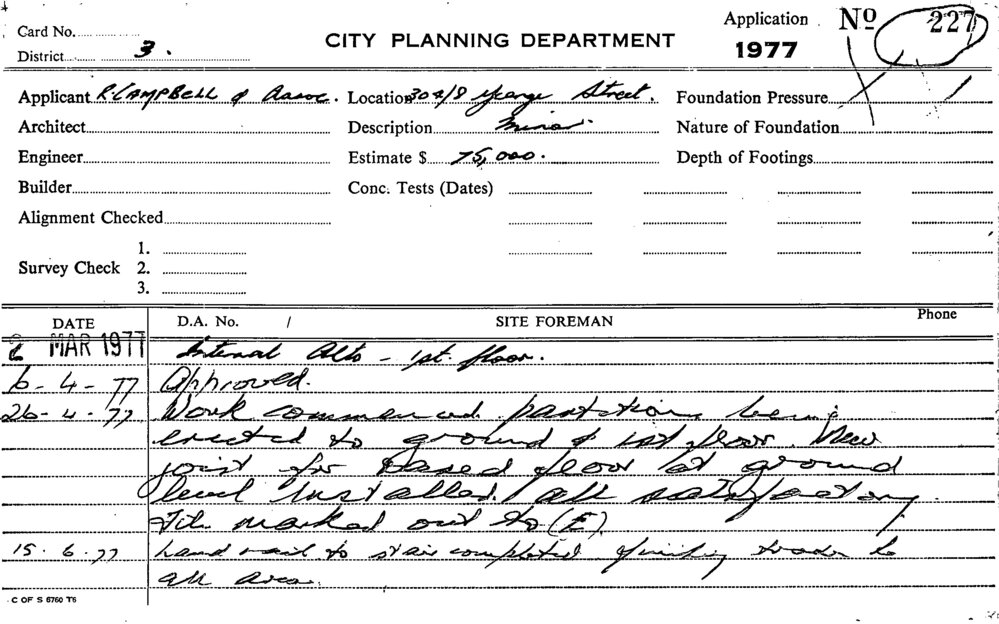 Application No 227
Card No.
District 3.
CITY PLANNING DEPARTMENT
1977
Applicant R. CAMPBELL & Assoc. Location 304/8 George Street. Foundation Pressure
Architect Description Minor. Nature of Foundation
Engineer Estimate $ 75,000. Depth of Footings
Builder Conc. Tests (Dates)
Alignment Checked
1.
Survey Check 2.
3.
DATE D.A. No. / SITE FOREMAN Phone
2 MAR 1977 Internal Alts - 1st. floor.
6-4-77 Approved.
26-4-77 Work commenced partitions being
erected to ground & 1st floor. New
joist for raised floor at ground
level installed. All satisfactory.
File marked out to (E).
15.6.77 hand rail to stair completed finishing trades to
all area.
C OF S 6760 T6